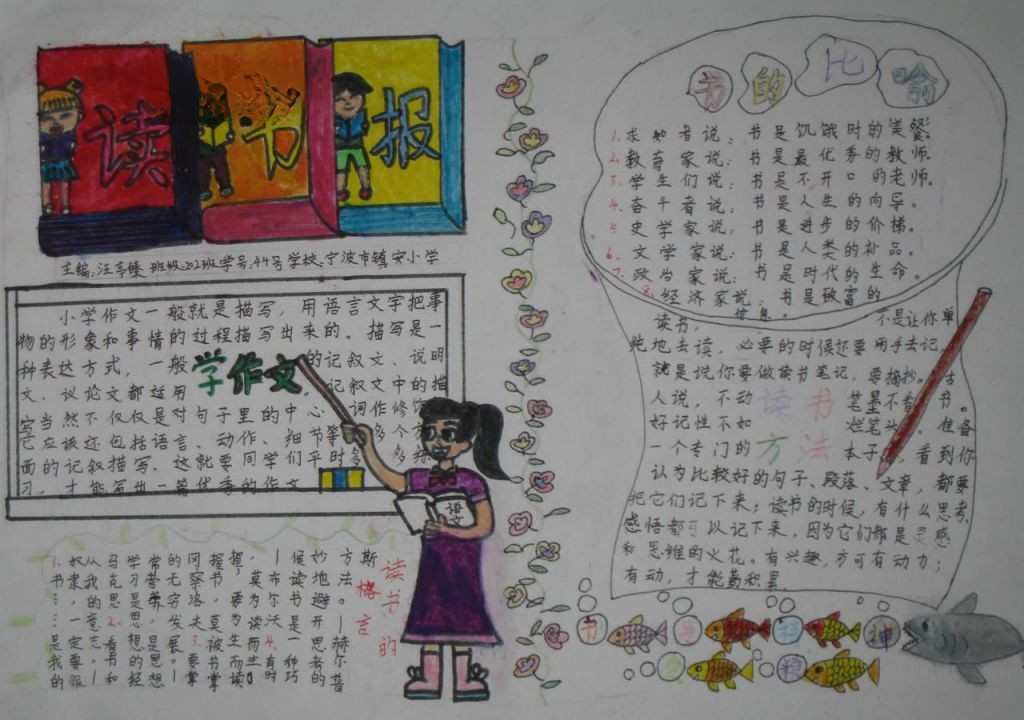 读书报
主编:汪 班级:202班 学号:44号 学校:宁波市镇安小学
小学作文一般就是描写，用语言文字把事
物的形象和事情的过程描写出来的。描写是一
种表达方式，一般 的记叙文、说明
文、议论文都运用 。记叙文中的描
写当然不仅仅是对句子里的中心词作修饰
它应该还包括语言、动作、细节等 多个方
面的记叙描写、这就要同学们平时多 多练
习，才能写出一篇优秀的作文
学作文
语文
读书的
格言
斯
方法。——赫尔普
妙地避开思考的
候读书是一种巧
——莫布尔沃4.有时
握，要为生而读
握书，莫被书掌
冈察洛夫3.要掌
的无穷发展。——
常营养，是思想
学习是思想的经
马克思2.看书和
从我的意志。——
奴隶，一定要服
1.书……是我的
书的比喻
1.求知者说：书是饥饿时的美餐
2.教育家说：书是最优秀的教师.
3.学生们说：书是不开口的老师。
4.奋斗者说：书是人生的向导。
5史学家说：书是进步的价梯。
6.文学家说：书是人类的补品。
7.政治家说：书是时代的生命。
8.经济家说：书是破富的
信息。
读书， 不是让你单
纯地去读，必要的时候还要用手去记，
就是说你要做读书笔记，要摘抄。古
人说，不动 笔墨不看 书。
好记性不如 烂笔头。准备
一个专门的 本子，看到你
读书
方法
认为比较好的句子、段落、文章，都要
把它们记下来；读书的时候，有什么思考、
感悟都可以记下来，因为它们都是灵感
和思维的火花。有兴趣，方可有动力；
有动，才能勤积累
书 是 精 神
食 粮